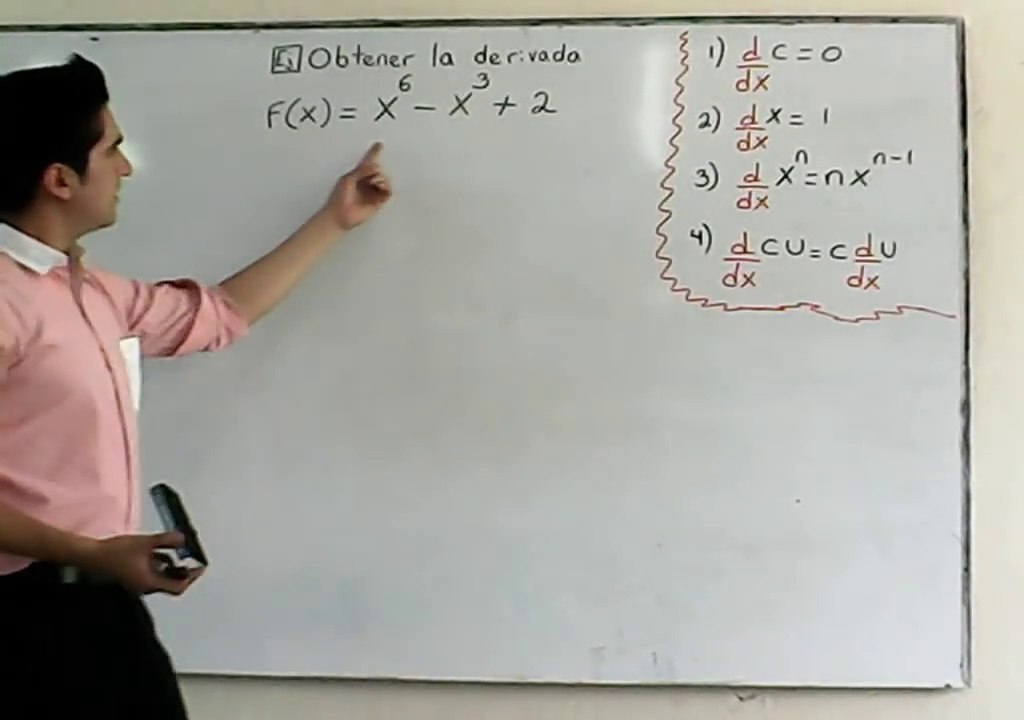 Ej Obtener la derivada
F(x) = x⁶ - x³ + 2
1) d/dx c = 0
2) d/dx x = 1
3) d/dx xⁿ = nxⁿ⁻¹
4) d/dx cu = c d/dx u